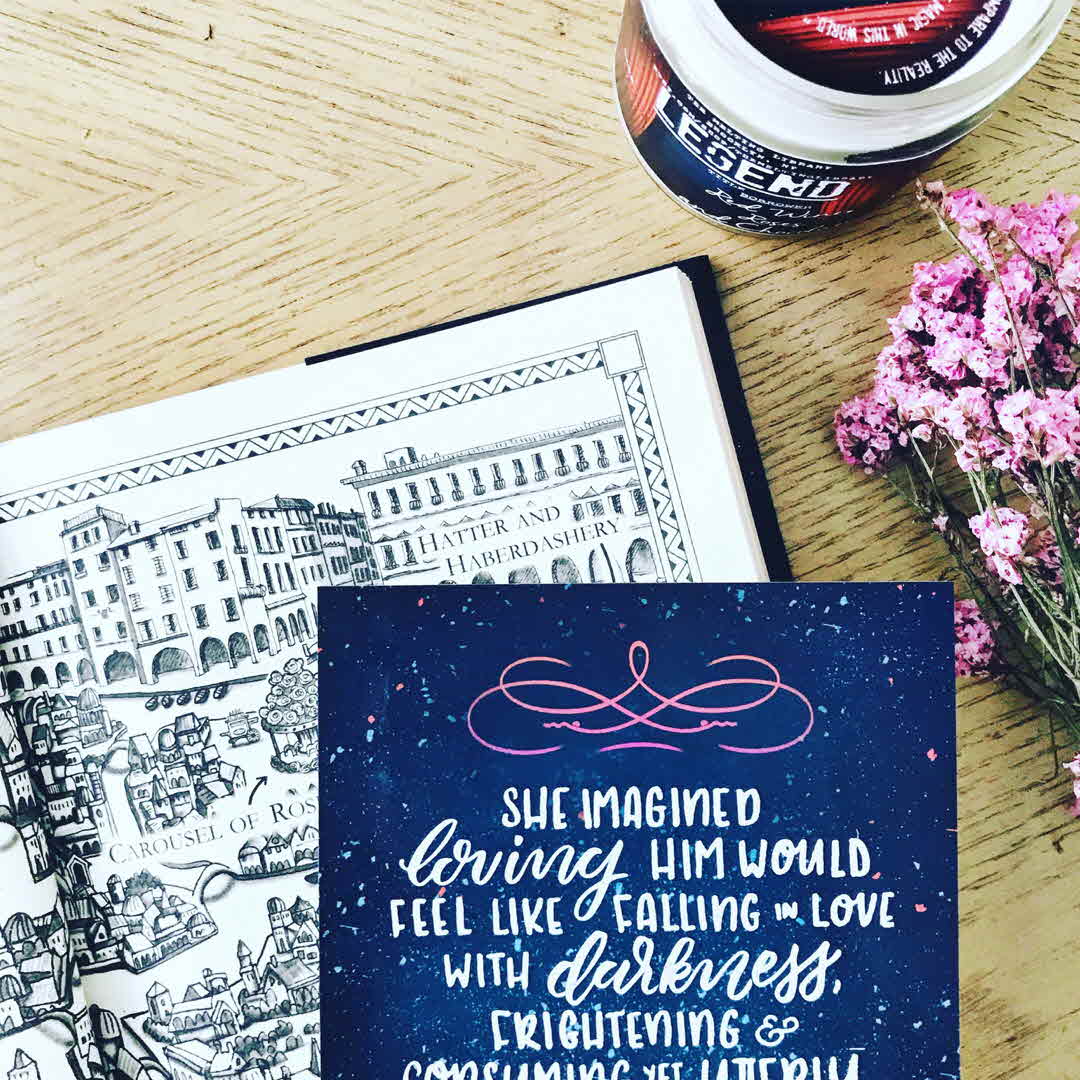 MAGIC IN THIS WORLD"
COMPARE TO THE REALITY.
LIBRARY
LEGEND
Red Wine
Roses
HATTER AND
HABERDASHERY
CAROUSEL OF ROS
SHE IMAGINED
loving HIM WOULD
FEEL LIKE FALLING IN LOVE
WITH darkness,
FRIGHTENING &
CONSUMING YET UTTERLY